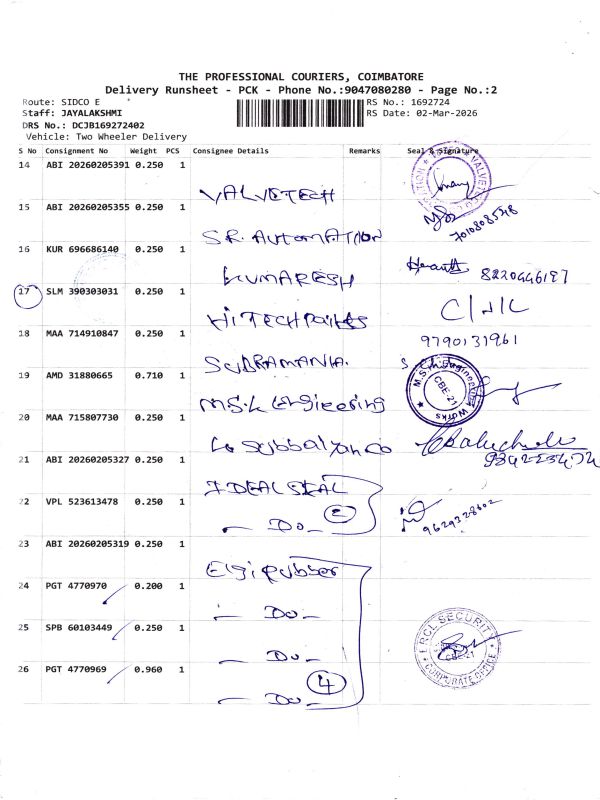 THE PROFESSIONAL COURIERS, COIMBATORE
Delivery Runsheet - PCK - Phone No.:9047080280 - Page No.:2
Route: SIDCO E
RS No.: 1692724
Staff: JAYALAKSHMI
RS Date: 02-Mar-2026
DRS No.: DCJB169272402
Vehicle: Two Wheeler Delivery
S No Consignment No Weight PCS Consignee Details Remarks Seal & Signature
14 ABI 20260205391 0.250 1 VALVETECH
15 ABI 20260205355 0.250 1 S.R. AUTOMATION 7010808548
16 KUR 696686140 0.250 1 KUMARESH 8220446187
17 SLM 390303031 0.250 1 HiTECH Paints
18 MAA 714910847 0.250 1 SUBRAMANIA. 9790131961
19 AMD 31880665 0.710 1 M.S.K Engieering M.S.K. Engineering Works CBE-21
20 MAA 715807730 0.250 1
21 ABI 20260205327 0.250 1 IDEAL SEAL
22 VPL 523613478 0.250 1 - Do - 2 9629328602
23 ABI 20260205319 0.250 1 Elgi Rubber
24 PGT 4770970 0.200 1 - Do -
25 SPB 60103449 0.250 1 - Do - ERCL SECURITY CBE-21 CORPORATE OFFICE
26 PGT 4770969 0.960 1 - Do - 4